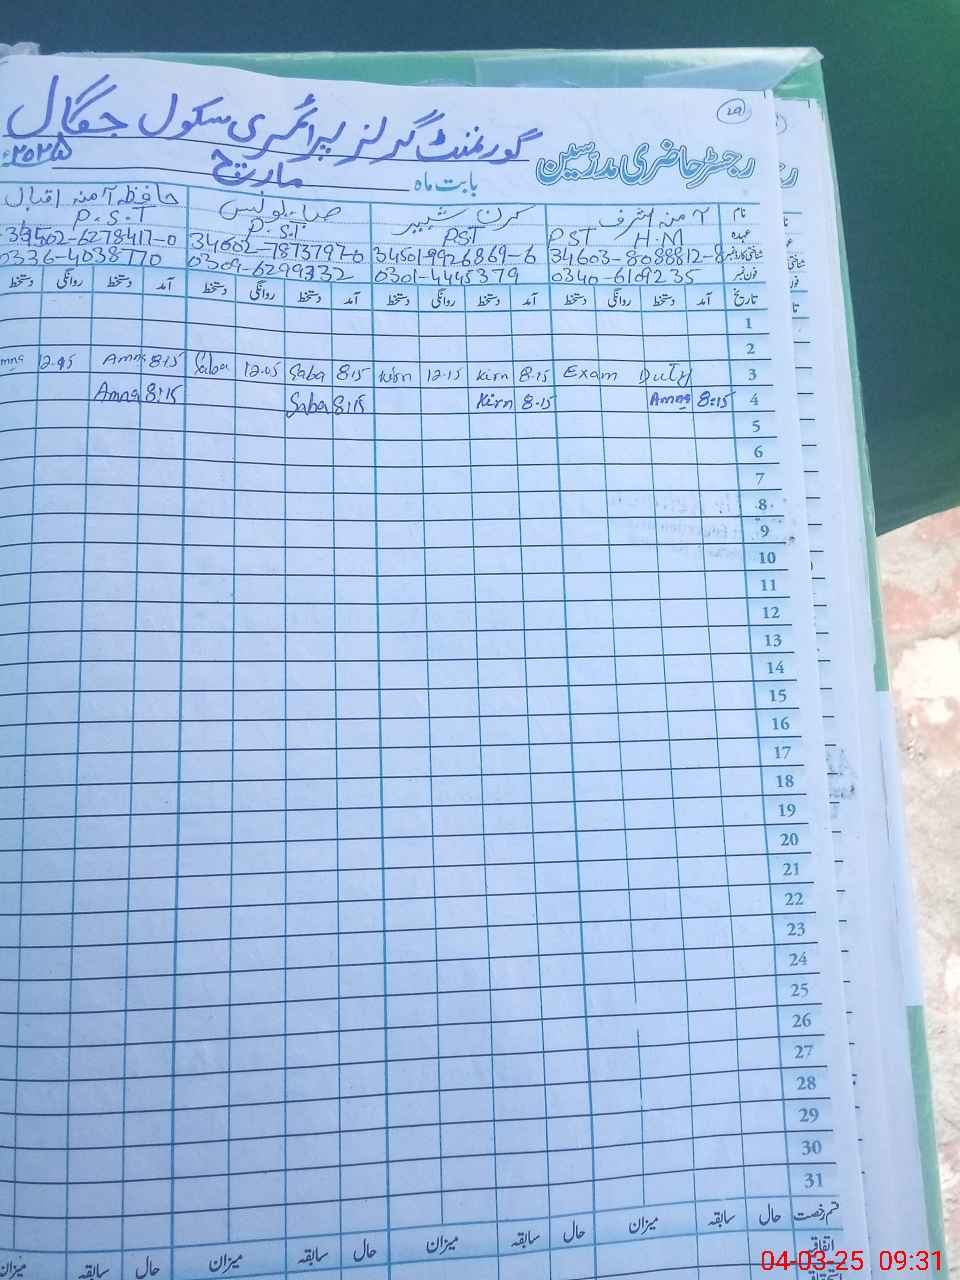 29
گورنمنٹ گرلز پرائمری سکول جگال
رجسٹر حاضری مدرسین
بابت ماہ مارچ ۲۰۲۵ء
نام آمنہ اشرف کرن شبیر صباء یونس حافظہ آمنہ اقبال
عہدہ PST H.M PST P.S.T P.S.T
شناختی کارڈ نمبر 34603-8088812-8 34501-9926869-6 34602-7873797-0 34502-6278417-0
فون نمبر 0340-6109235 0301-4445379 0309-6299332 0336-4038770
تاریخ آمد دستخط روانگی دستخط آمد دستخط روانگی دستخط آمد دستخط روانگی دستخط آمد دستخط روانگی دستخط
1
2
3 Exam Duty 8.15 Kirn 12.15 Kirn 8.15 Saba 12.05 Saba 8.15 Amna 12.45
4 8:15 Amna 8.15 Kirn 8:15 Saba 8:15 Amna
5
6
7
8
9
10
11
12
13
14
15
16
17
18
19
20
21
22
23
24
25
26
27
28
29
30
31
قسم رخصت حال سابقہ میزان حال سابقہ میزان حال سابقہ میزان حال سابقہ میزان
اتفاقیہ
04-03-25 09:31